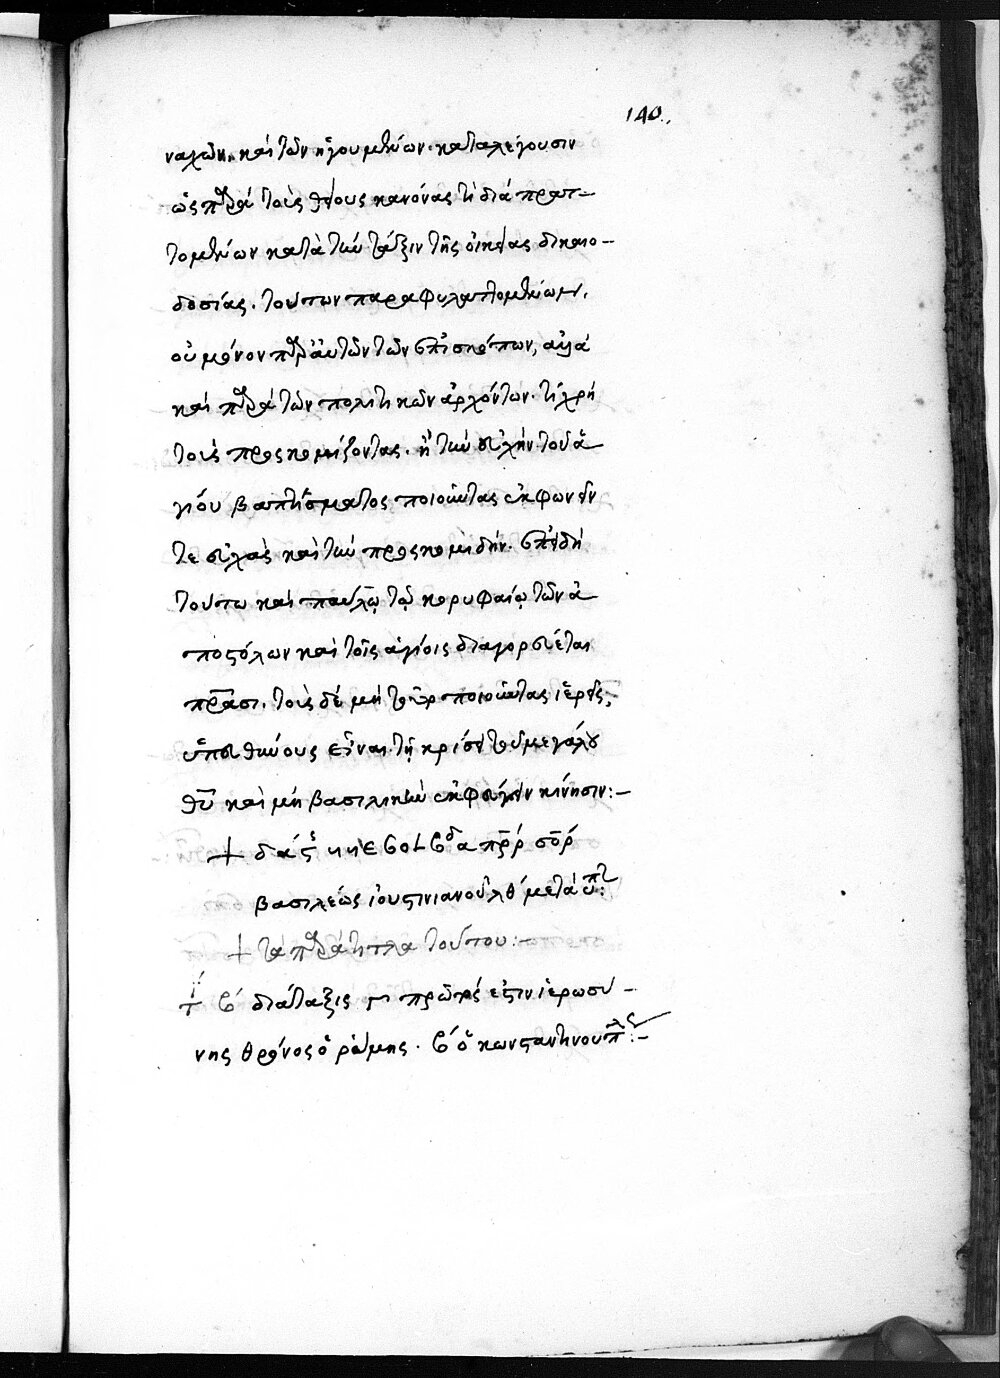 140.
ναχῶν. καὶ τῶν ἡγουμένων. καταλέγουσιν
ὡς παρὰ τοὺς θείους κανόνας τὶ διαπρατ-
τομένων κατὰ τὴν τάξιν τῆς οἰκείας δικαιο-
δοσίας. τούτων παραφυλαττομένων,
οὐ μόνον παρ' αὐτῶν τῶν ἐπισκόπων, αλλὰ
καὶ παρὰ τῶν πολιτικῶν ἀρχόντων. τὶ χρὴ
τοὺς προσκομίζοντας. ἢ τὴν εὐχὴν τοῦ ἁ-
γίου βαπτίσματος ποιοῦντας ἐκφωνεῖν
τε εὐχὰς καὶ τὴν προσκομιδήν. ἐπειδὴ
τούτω καὶ παύλῳ τῷ κορυφαίῳ τῶν ἀ-
ποστόλων καὶ τοῖς ἁγίοις διαγορεύεται
πρᾶσι. τοὺς δὲ μὴ ποιοῦντας ἱερεῖς,
ὑπευθύνους εἶναι τῇ κρίσει τοῦ μεγάλου
θῡ καὶ μὴ βασιλικὴν ἐκφεύγειν κίνησιν:-
βασιλέως ἰουστινιανοῦ λθ΄ μετὰ
+ τὰ παράτιτλα τούτου:-
διάταξις πρῶτος ἐστιν ἱερωσύ-
νης θρόνος ὁ ῥώμης. β΄ ὁ κωνσταντινουπλς:-